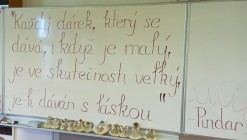 "Každý dárek, který se
dává, i když je malý,
je ve skutečnosti velký,
je-li dáván s láskou"
-Pindar